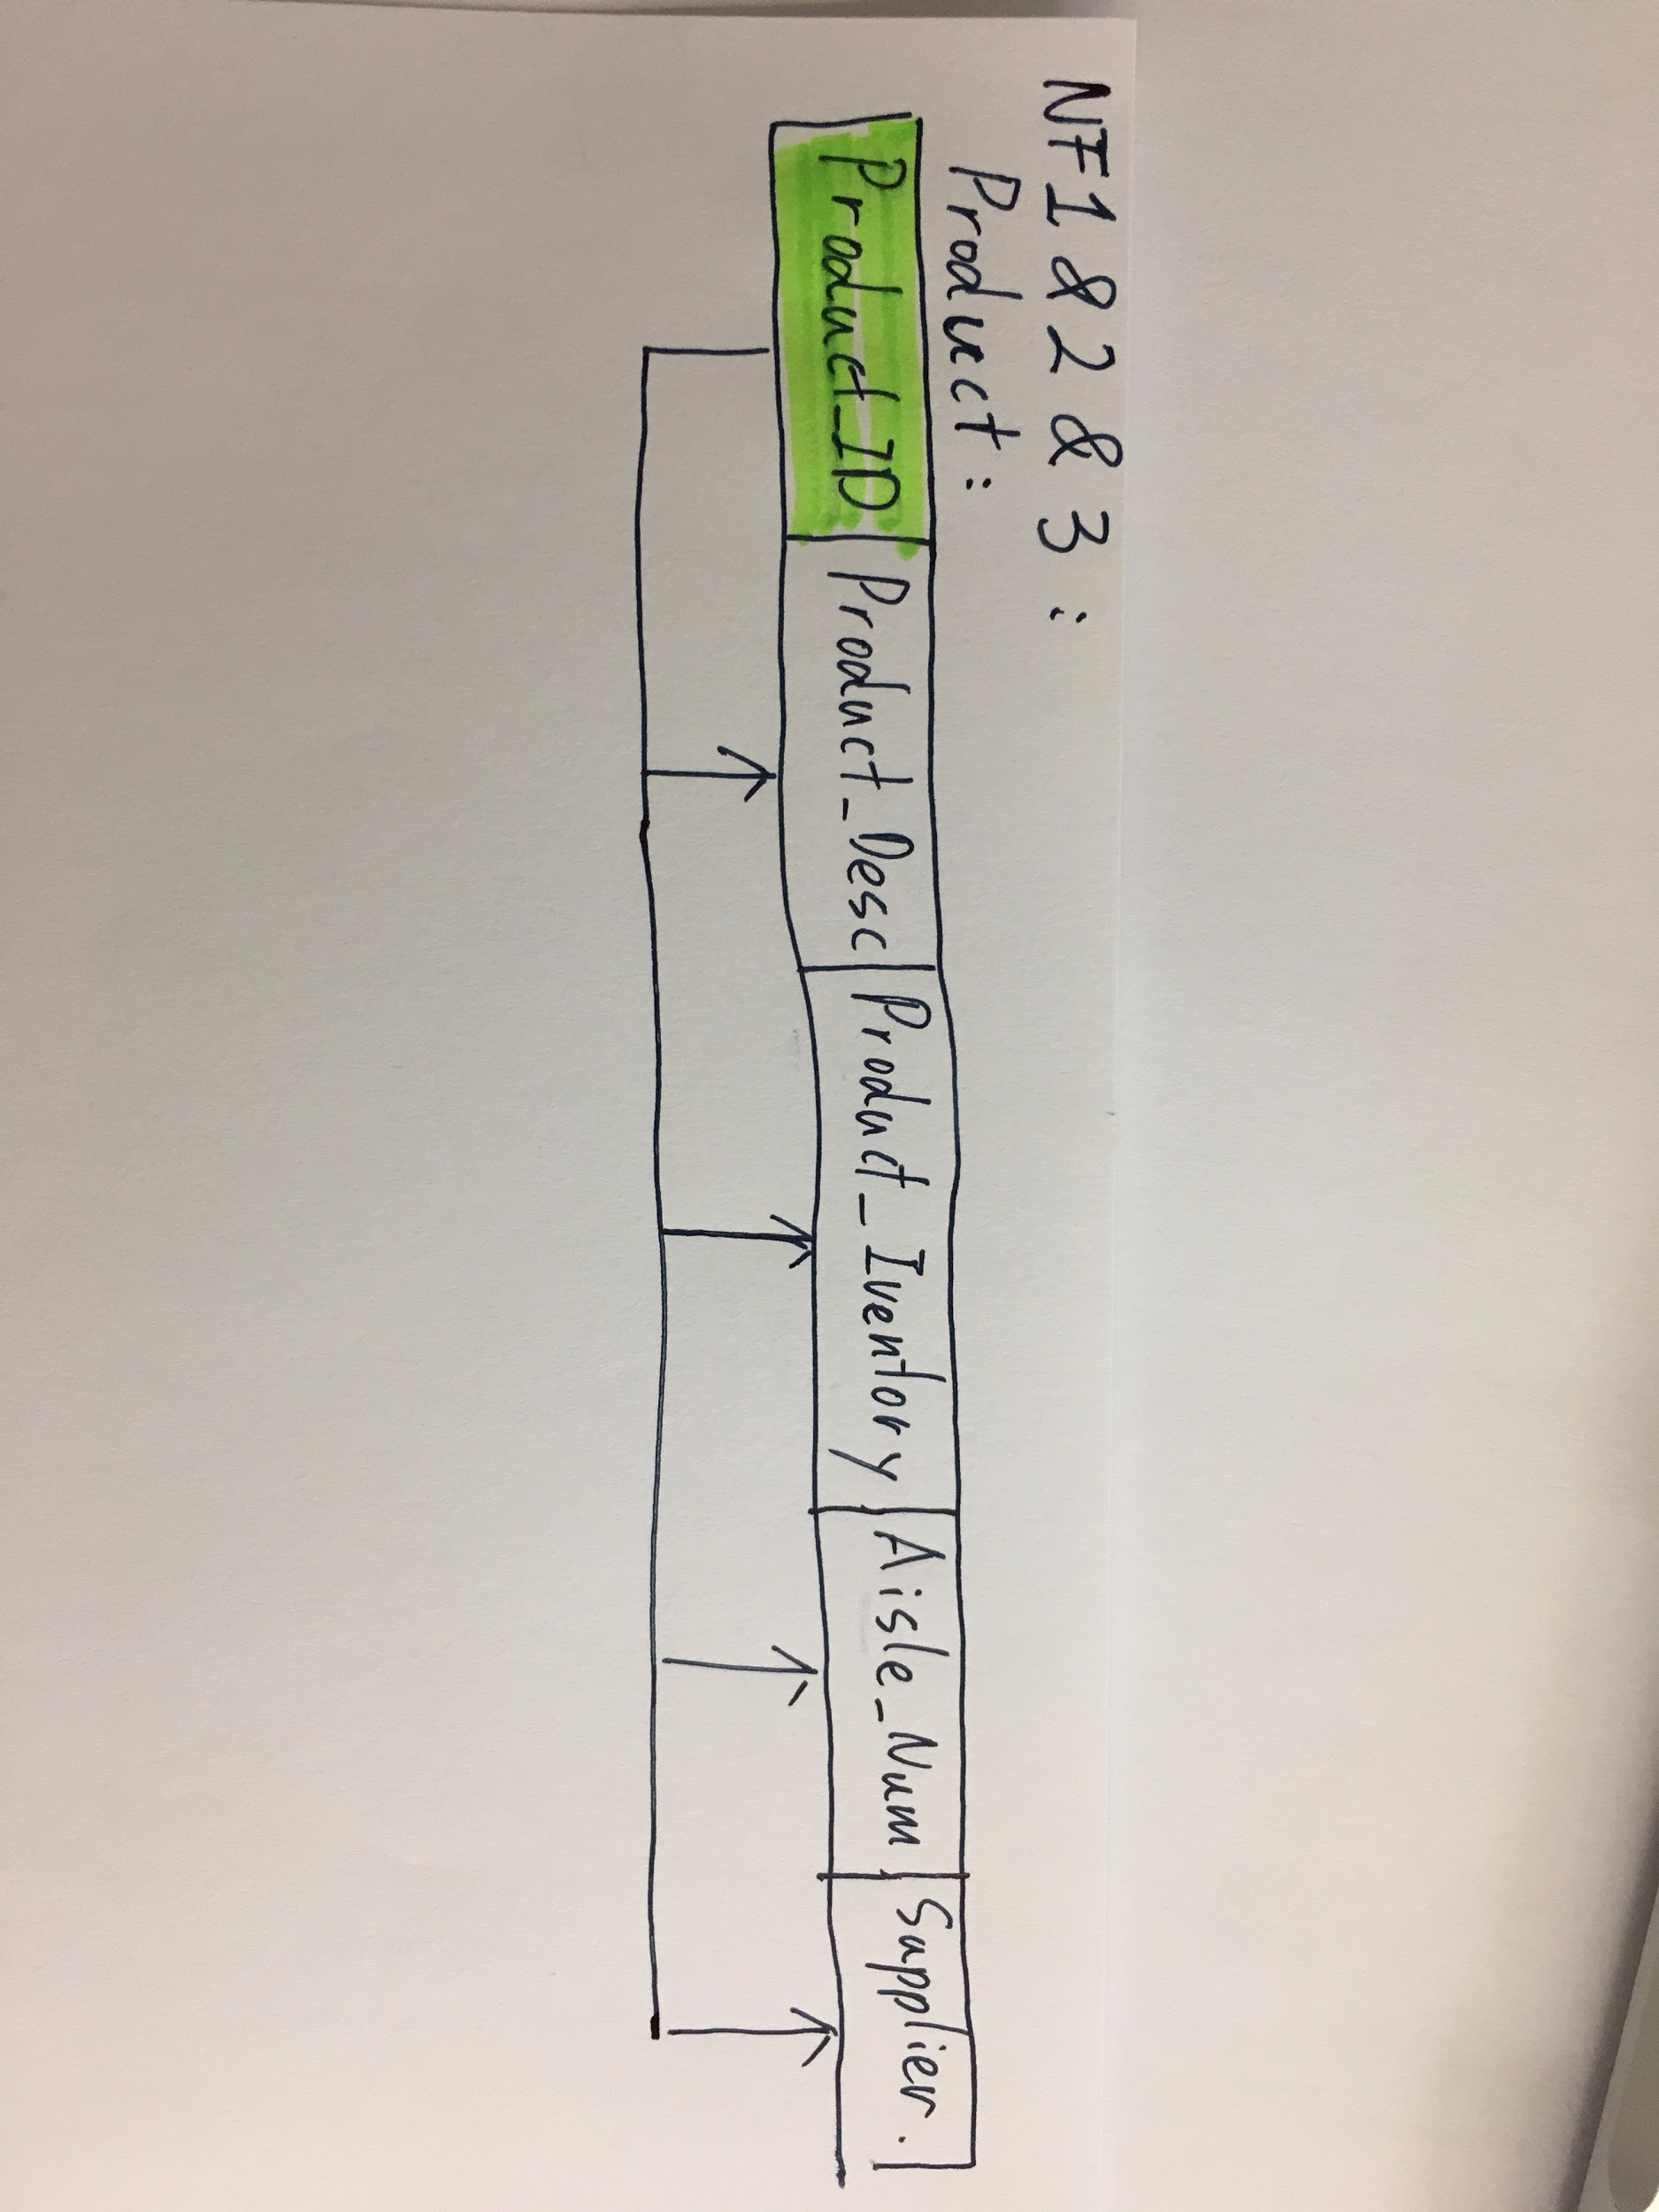 NF1 & 2 & 3 :
Product :
Product_ID Product_Desc Product_Iventory Aisle_Num Supplier.